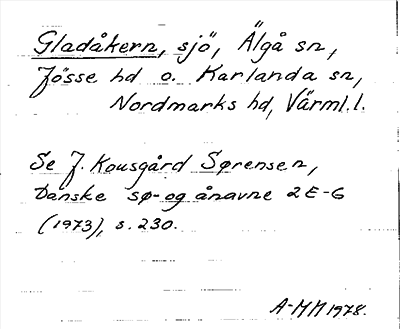 Gladåkern, sjö, Älgå sn,
Jösse hd o. Karlanda sn,
Nordmarks hd, Värml.l.
Se J. Kousgård Sørensen,
Danske sø- og ånavne 2 E-G
(1973), s. 230.
A-MM 1978.